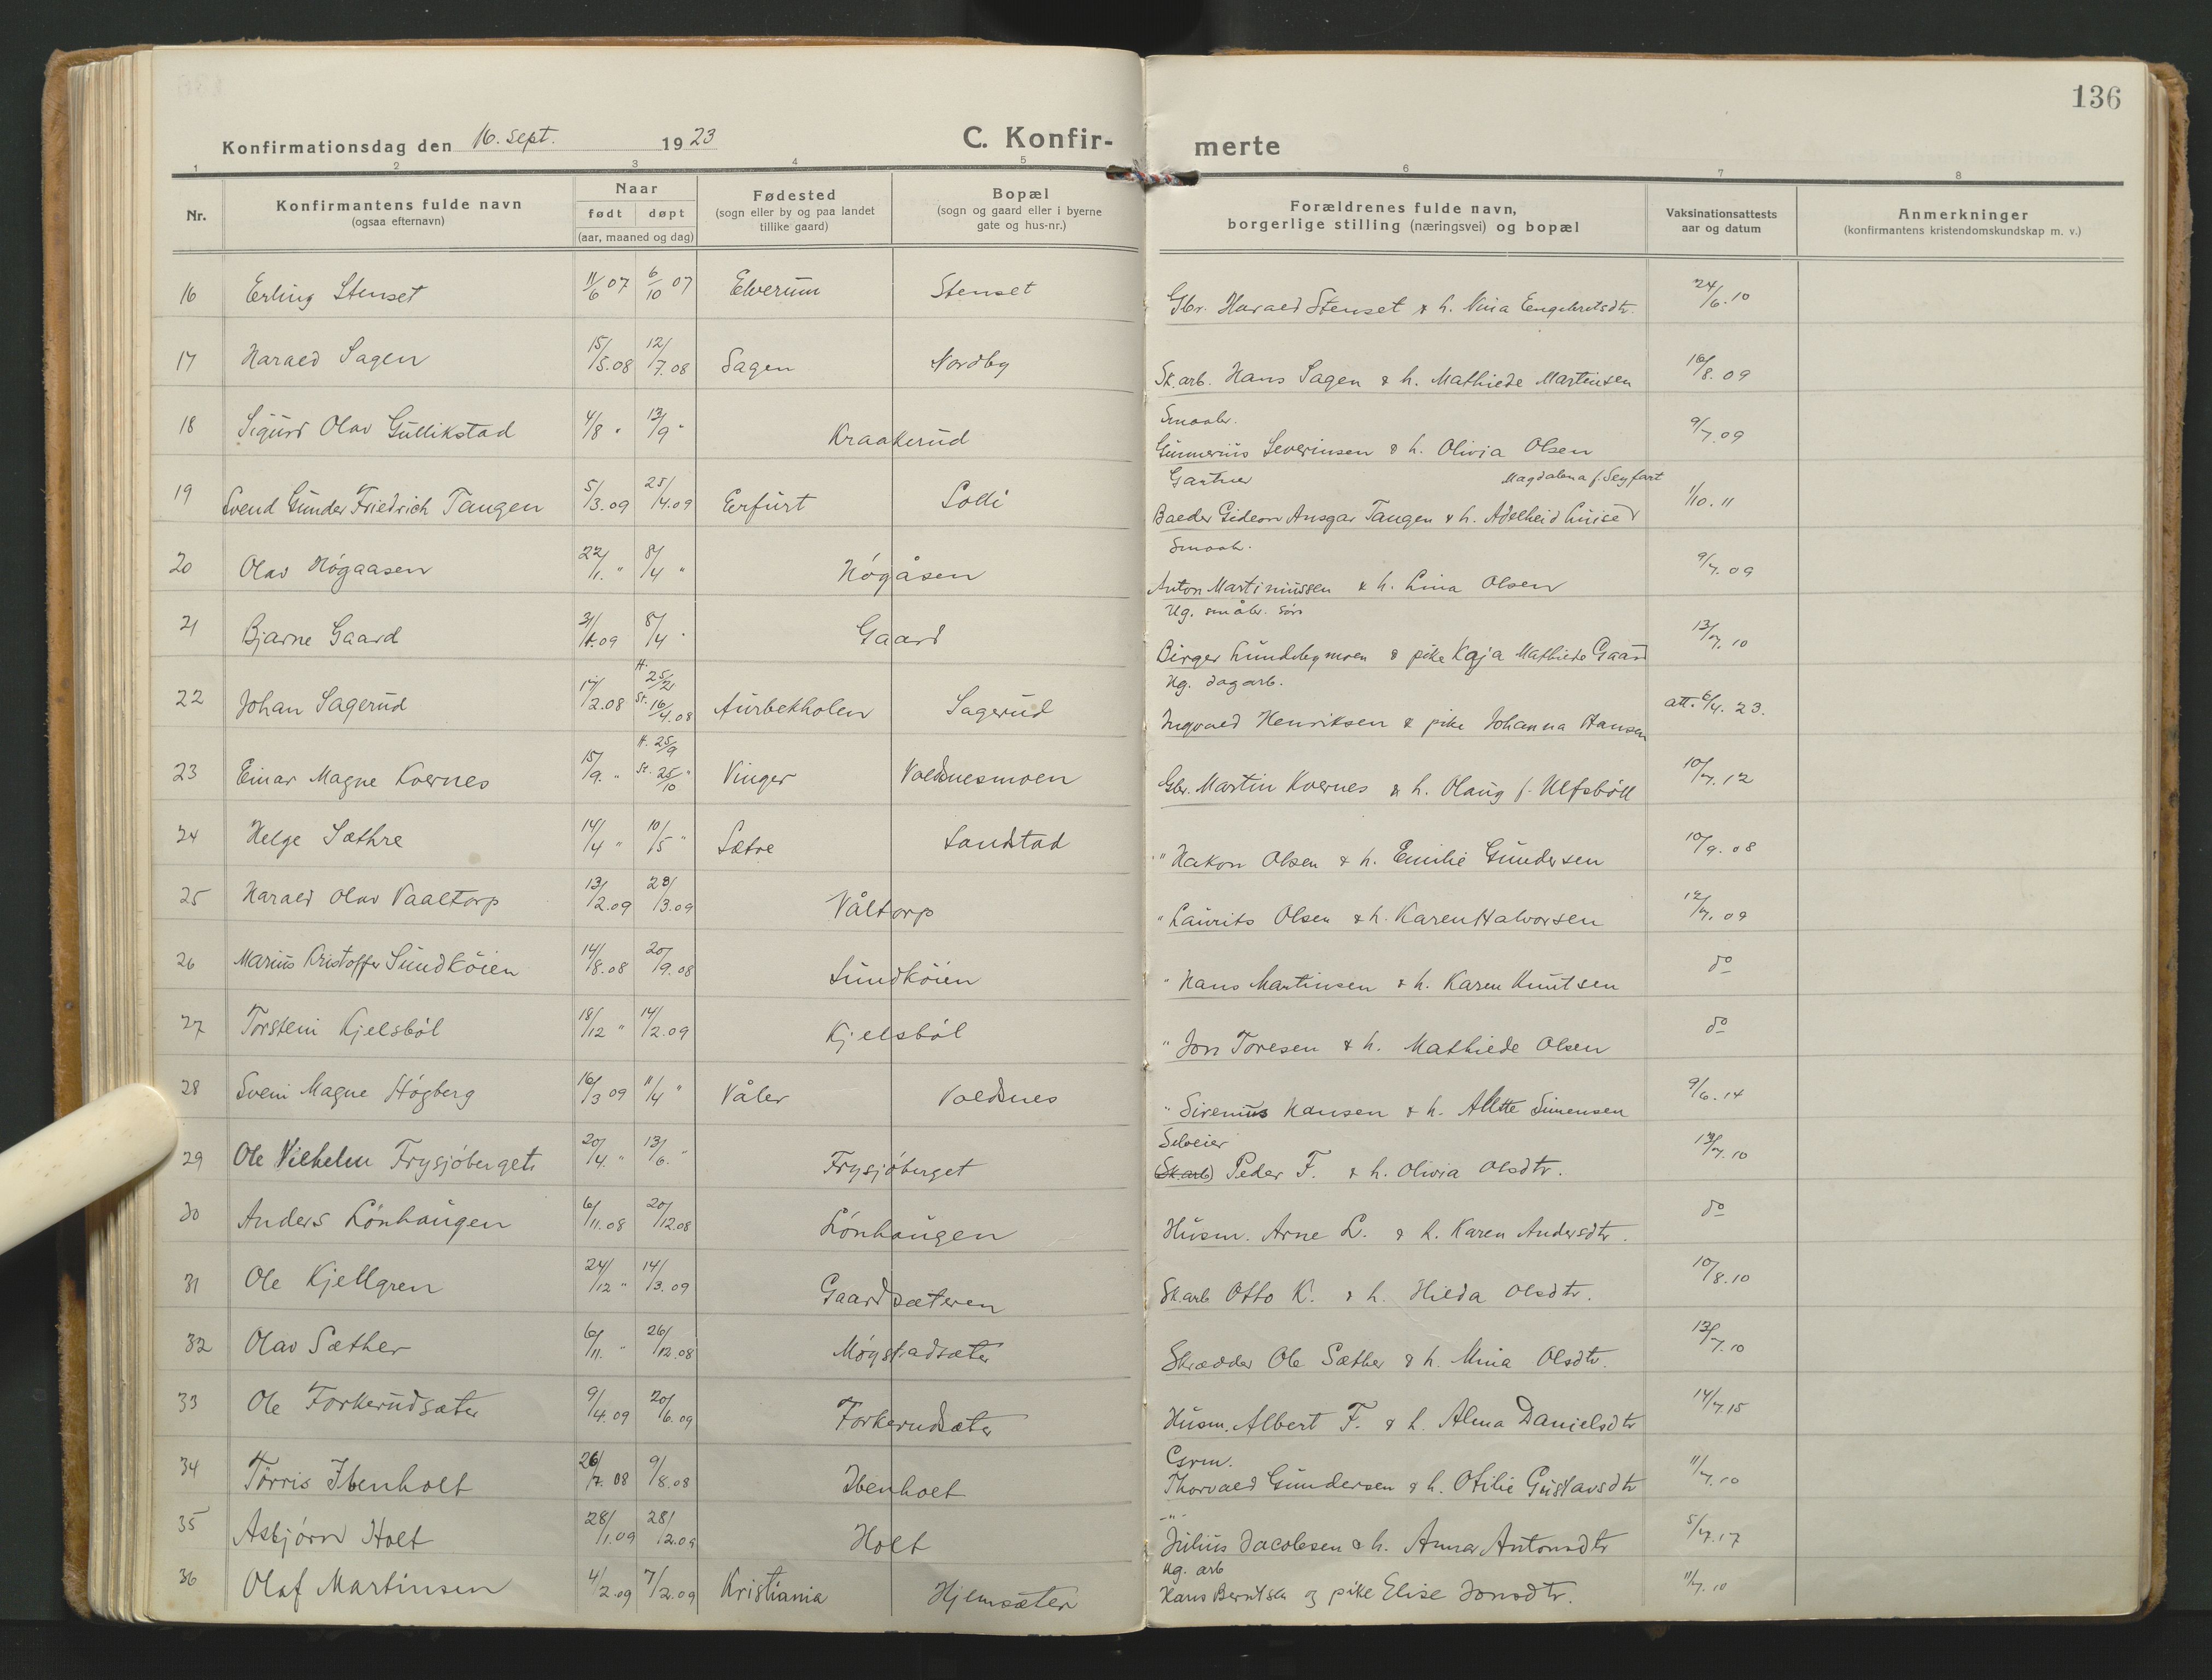 136
Konfirmationsdag den 16. sept. 1923 C. Konfir- merte
1 2 3 4 5 6 7 8
Nr. Konfirmantens fulde navn (ogsaa efternavn) Naar født døpt (aar, maaned og dag) Fødested (sogn eller by og paa landet tillike gaard) Bopæl (sogn og gaard eller i byerne gate og hus-nr.) Forældrenes fulde navn, borgerlige stilling (næringsvei) og bopæl Vaksinationsattests aar og datum Anmerkninger (konfirmantens kristendomskundskap m. v.)
16 Erling Stenset 11/6 07 6/10 07 Elverum Stenset Gbr. Harald Stenset & h. Nina Engebretsdtr. 24/6.10
17 Harald Sagen 15/5.08 12/7.08 Sagen Nordby Sk.arb. Hans Sagen & h. Mathilde Martinsen 16/8.09
18 Sigurd Olav Gullikstad 4/8 " 13/9 " Kraakerud Smaabr. Gunnerius Severinsen & h. Olivia Olsen 9/7.09
19 Svend Gunder Friedrich Tangen 5/3.09 25/4.09 Erfurt Solli Gartner Balder Gideon Ansgar Tangen & h. Adelheid Luise Magdalena f. Seyfart 1/10.11
20 Olav Högaasen 22/1. " 8/4 " Högåsen Smaabr. Anton Martiniussen & h. Lina Olsen 9/7.09
21 Bjarne Gaard 31/1.09 8/4 " Gaard Ug. småbr. sön Birger Lundebymoen & pike Kaja Mathilde Gaard 13/7.10
22 Johan Sagerud 17/2.08 H. 25/2 St. 16/4.08 Aurbekkholen Sagerud Ug. dagarb. Ingvald Henriksen & pike Johanna Hansen att. 6/4.23.
23 Einar Magne Kvernes 15/9. " H. 25/9 St. 25/10 " Vinger Voldsnesmoen Gbr. Martin Kvernes & h. Olaug f. Ulfsböll 10/7.12
24 Helge Sæthre 14/4 " 10/5 " Sætre Sandstad " Hakon Olsen & h. Emilie Gundersen 10/9.08
25 Harald Olav Vaaltorp 13/2.09 28/3.09 Våltorp " Laurits Olsen & h. Karen Halvorsen 12/7.09
26 Marius Kristoffer Sundköien 14/8.08 20/9.08 Sundköien " Hans Martinsen & h. Karen Knutsen do
27 Torstein Kjelsböl 18/12 " 14/2.09 Kjelsböl " Jon Toresen & h. Mathilde Olsen do
28 Svein Magne Högberg 16/3 09 11/4 " Våler Voldsnes " Sirenius Hansen & h. Alette Simensen 9/6.14
29 Ole Vilhelm Frysjöberget 20/4. " 13/6. " Frysjöberget Selveier (Sk.arb) Peder F. & h. Olivia Olsdtr. 13/7.10
30 Anders Lönhaugen 6/11.08 20/12.08 Lönhaugen Husm. Arne L. & h. Karen Andersdtr. do
31 Ole Kjellgren 24/12 " 14/3.09 Gaardsæteren Skarb Otto K. & h. Hilda Olsdtr. 10/8.10
32 Olav Sæther 6/11. " 26/12.08 Mögstadsæter Skrædder Ole Sæther & h. Mina Olsdtr. 13/7.10
33 Ole Torkerudsæter 9/4.09 20/6.09 Torkerudsæter Husm. Albert T. & h. Alma Danielsdtr 14/7.15
34 Törris Ibenholt 26/7.08 9/8.08 Ibenholt Thorvald Gundersen & h. Otilie Gustavsdtr 11/7.10
35 Asbjörn Holt 28/1.09 28/2.09 Holt -"- Julius Jacobsen & h. Anna Antonsdtr 5/7.17
36 Olaf Martinsen 4/2.09 7/2.09 Kristiania Hjemsæter Ug. arb Hans Berntsen og pike Elise Jonsdtr. 11/7.10